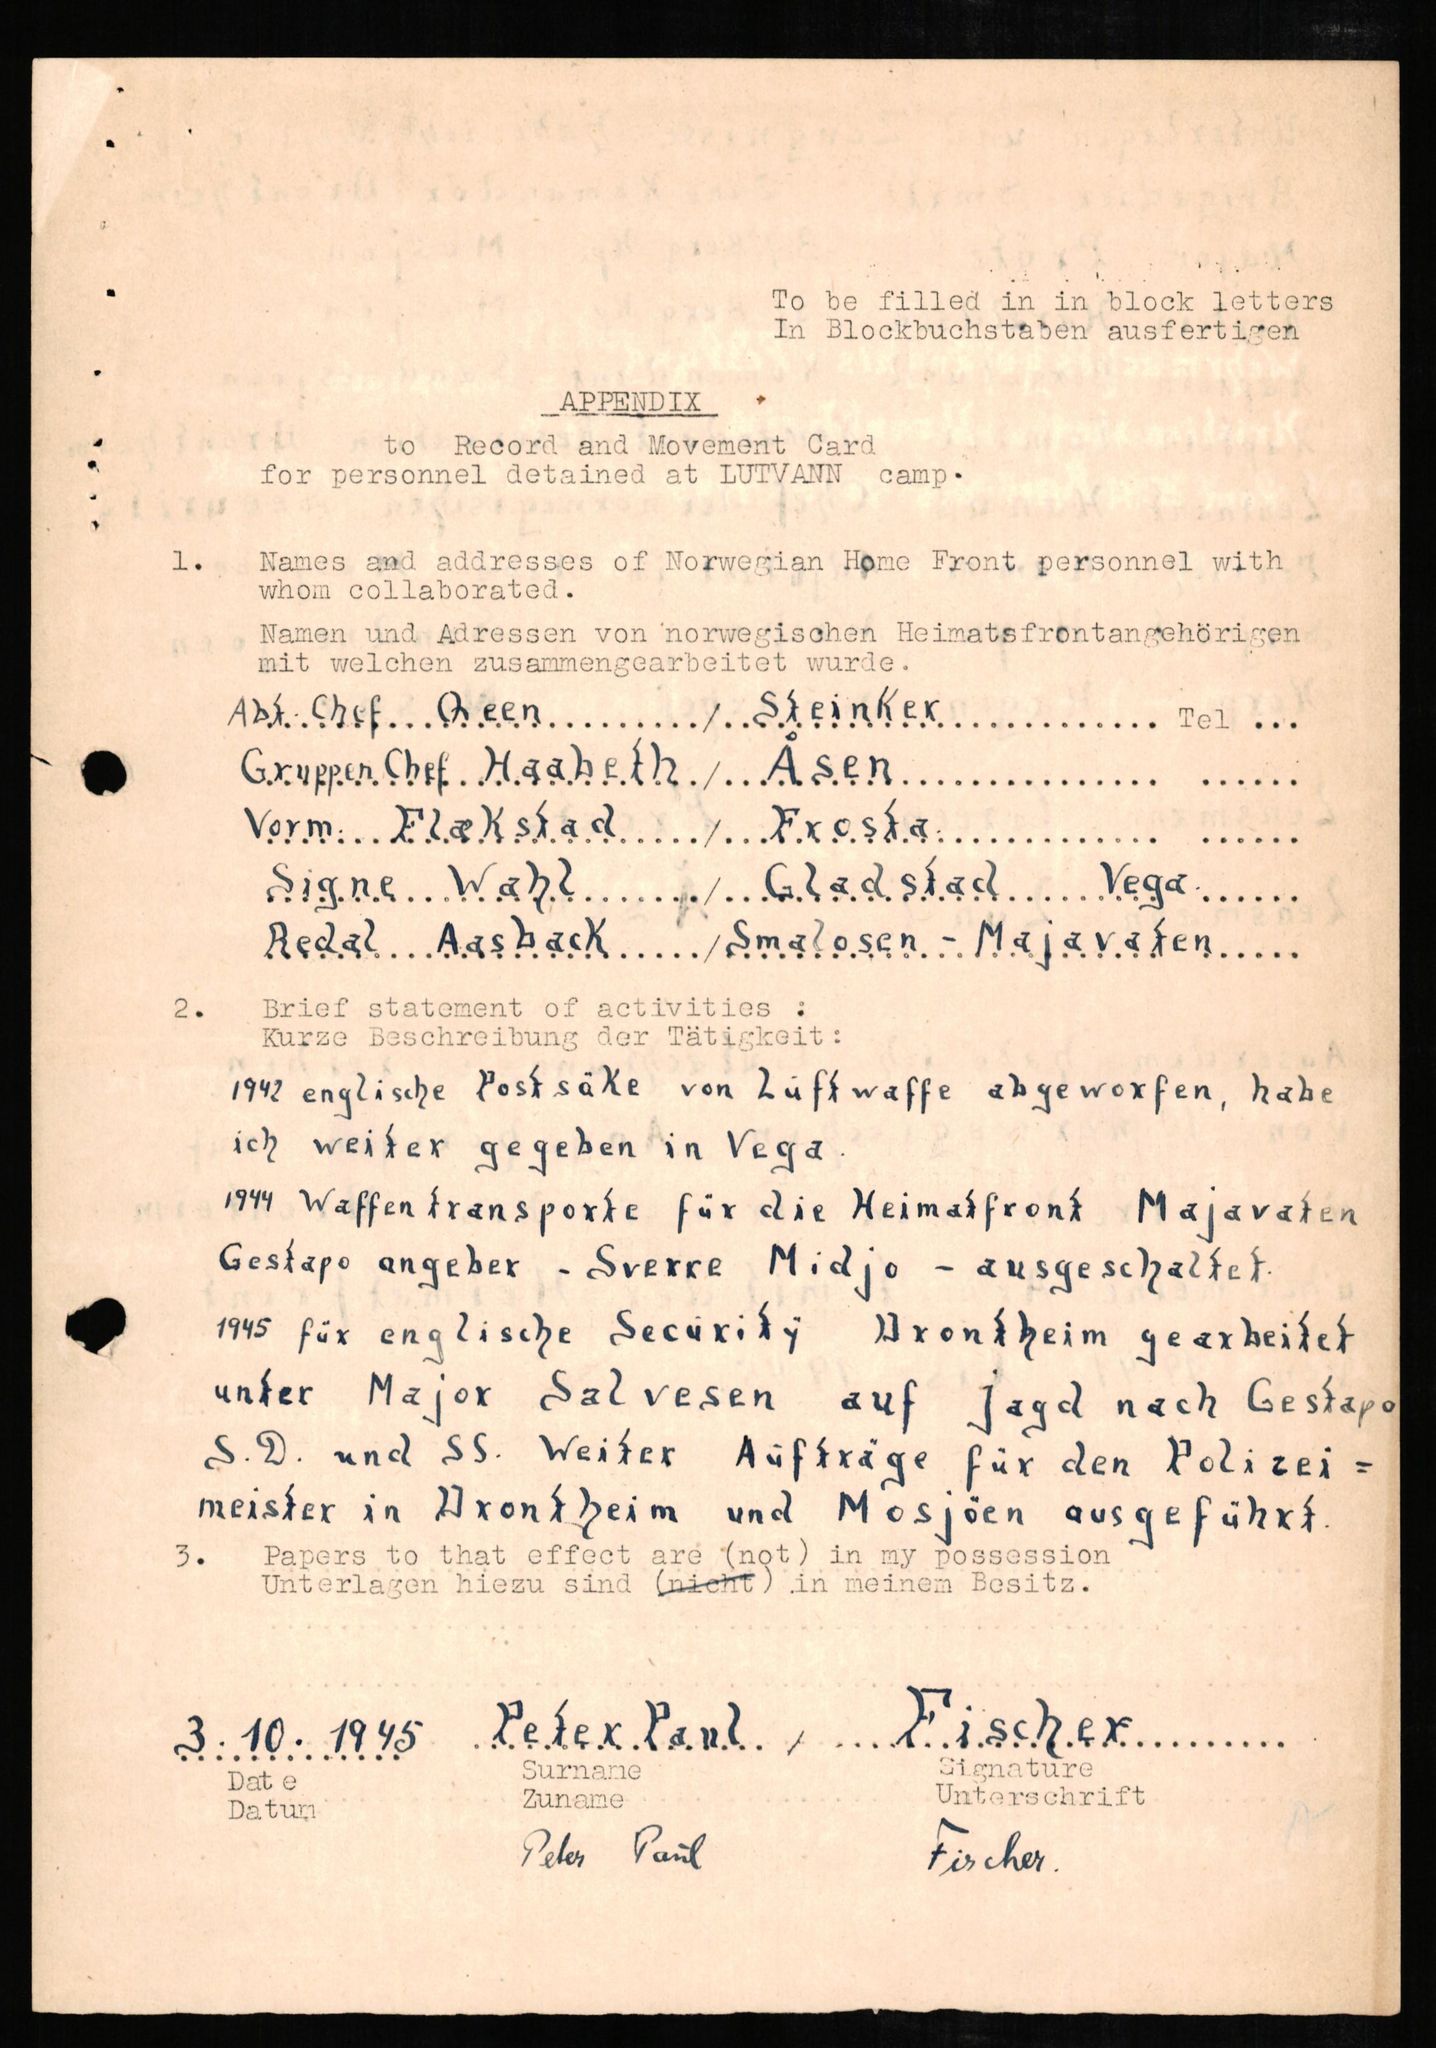 To be filled in in block letters
In Blockbuchstaben ausfertigen
APPENDIX
to Record and Movement Card
for personnel detained at LUTVANN camp.
1. Names and addresses of Norwegian Home Front personnel with
whom collaborated.
Namen und Adressen von norwegischen Heimatsfrontangehörigen
mit welchen zusammengearbeitet wurde.
Abt. Chef Oeen / Steinker Tel ...
Gruppen Chef Haabeth / Åsen
Vorm. Flækstad / Frosta.
Signe Wahl / Gladstad Vega.
Redal Aasback / Smalosen - Majavaten
2. Brief statement of activities :
Kurze Beschreibung der Tätigkeit:
1942 englische Postsäke von Luftwaffe abgeworfen, habe
ich weiter gegeben in Vega.
1944 Waffentransporte für die Heimatfront Majavaten
Gestapo angeber - Sverre Midjo - ausgeschaltet.
1945 für englische Security Drontheim gearbeitet
unter Major Salvesen auf Jagd nach Gestapo
S.D. und SS. Weiter Aufträge für den Polizei=
meister in Drontheim und Mosjöen ausgeführt.
3. Papers to that effect are (not) in my possession
Unterlagen hiezu sind (nicht) in meinem Besitz.
3.10.1945 Peter Paul / Fischer
Date Surname Signature
Datum Zuname Unterschrift
Peter Paul Fischer.